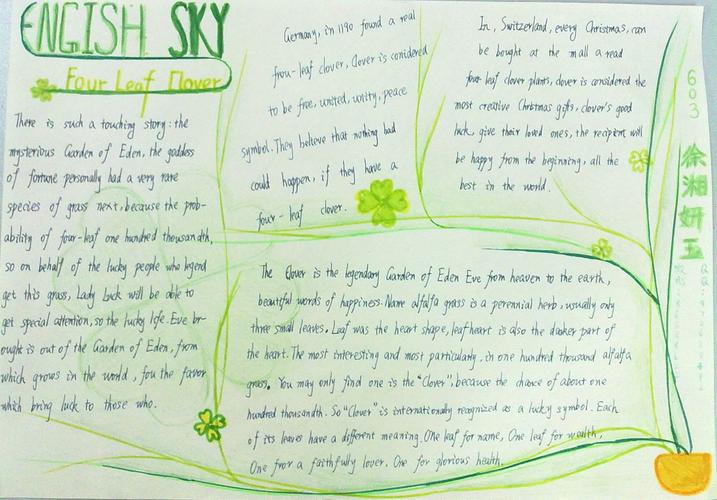 ENGISH SKY
Four Leaf Clover
There is such a touching story: the
mysterious Garden of Eden, the goddess
of fortune personally had a very rare
species of grass next, because the prob-
ability of four-leaf one hundred thousandth,
so on behalf of the lucky people who legend
get this grass, Lady Luck will be able to
get special attention, so the lucky life. Eve br-
ought is out of the Garden of Eden, from
which grows in the world, fou the favor
which bring luck to those who.
Germany, in 1190 found a real
frou-leaf clover, Clover is conidered
to be free, united, unity, peace
symbol. They believe that nothing bad
could happen, if they have a
four-leaf clover.
In, Switzerland, every Christmas, can
be bought at the mall a read
four leaf clover plants, clover is considered the
most creative Christmas gifts, clover's good
luck, give their loved ones, the recipient will
be happy from the beginning, all the
best in the world.
The Clover is the legendary Garden of Eden Eve from heaven to the earth,
beautiful words of happiness. Name alfalfa grass is a perennial herb, usually only
three small leaves. Leaf was the heart shape, leaf heart is also the darker part of
the heart. The most interesting and most particularly, in one hundred thousand alfalfa
grass. You may only find one is the "Clover", because the chance of about one
hundred thousandth. So "Clover" is internationally recognized as a lucky symbol. Each
of its leaves have a different meaning. One leaf for name, One leaf for wealth,
One fror a faithfully lover. One for glorious health.
603
徐湘妍玉